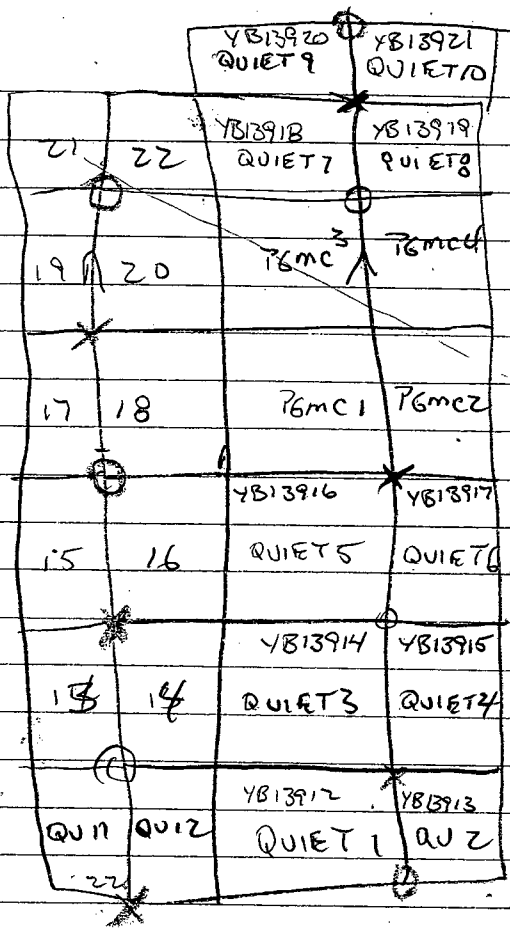 YB13920 YB13921
QUIET9 QUIET10
YB13918 YB13919
21 22 QUIET7 QUIET8
19 20 PGMC3 PGMC4
17 18 PGMC1 PGMC2
YB13916 YB13917
15 16 QUIET5 QUIET6
YB13914 YB13915
13 14 QUIET3 QUIET4
YB13912 YB13913
QU11 QU12 QUIET1 QU2
22